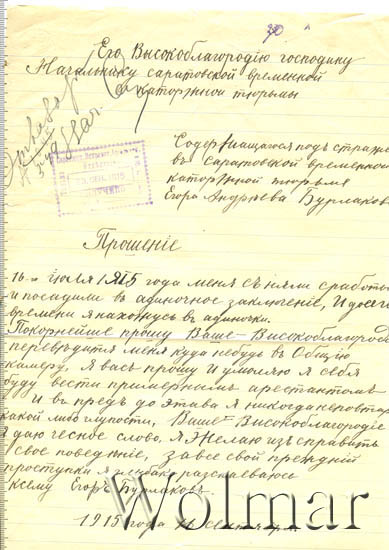 30
Его Высокоблагородію господину
Начальнику саратовской временной
каторжной тюрьмы
Содержащагося подъ стражей
въ саратовской временной
каторжной тюрьмѣ
Егора Андрѣева Бурлакова
Прошеніе
16-го июля 1915 года меня сняли сработы
и посадили в адиночное заключеніе, И досего
времени я нахожусь въ адиночки.
Покорнейше прошу Ваше-Высокоблагородіе
перевѣдитя меня куда небудь въ Общію
камеру, Я васъ прошу И умоляю я себя
буду вести примернымъ арестантомъ
И в предъ до этава я никогда неповтарю
какой либо глупости, Ваше-Высокоблагородіе
я даю чесное слово. Я Желаю изсправить
свое поведніе, за все свой прежній
проступки я глубако разскаеваюсь
Ксему Егоръ Бурлаковъ.
1915 года 11 Сентября
Wolmar